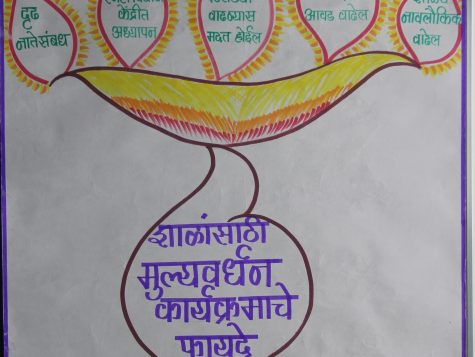 दृढ
नातेसंबंध
केंद्रीत
अध्यापन
वाढण्यास
मदत होईल
आवड वाढेल
नावलौकिक
वाढेल
शाळांसाठी
मुल्यवर्धन
कार्यक्रमाचे
फायदे